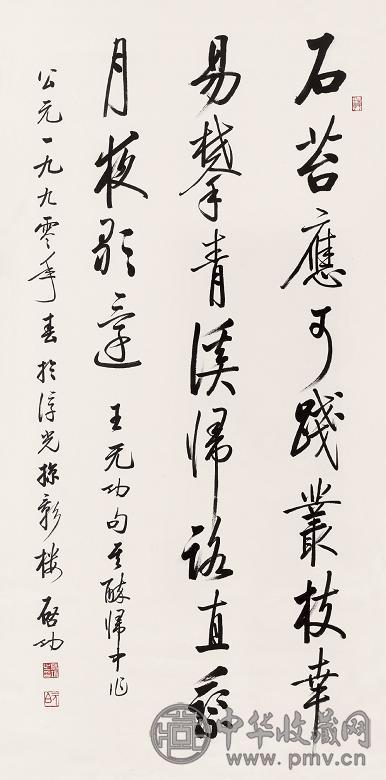 石苔應可踐叢枝幸
易攀青溪歸路直乘
月夜歌還 王无功句 醉歸中作
公元一九九零年春於浮光掠影樓 啟功
中华收藏网
www.pmv.cn